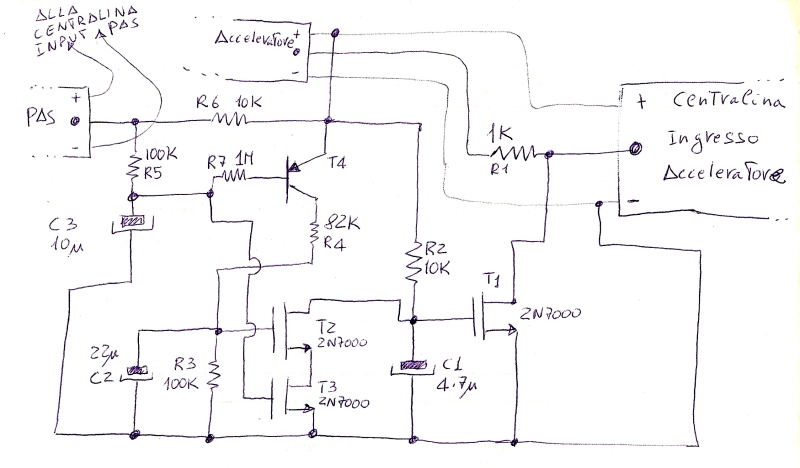 ALLA
CENTRALINA
INPUT PAS
Acceleratore +
-
+
PAS
-
R6 10K
100K
R5
R7 1M
T4
82K
R4
C3
10µ
1K
R1
+ Centralina
Ingresso
Acceleratore
-
R2
10K
T1
2N7000
22µ
C2
R3
100K
T2
2N7000
T3
2N7000
C1
4.7µ